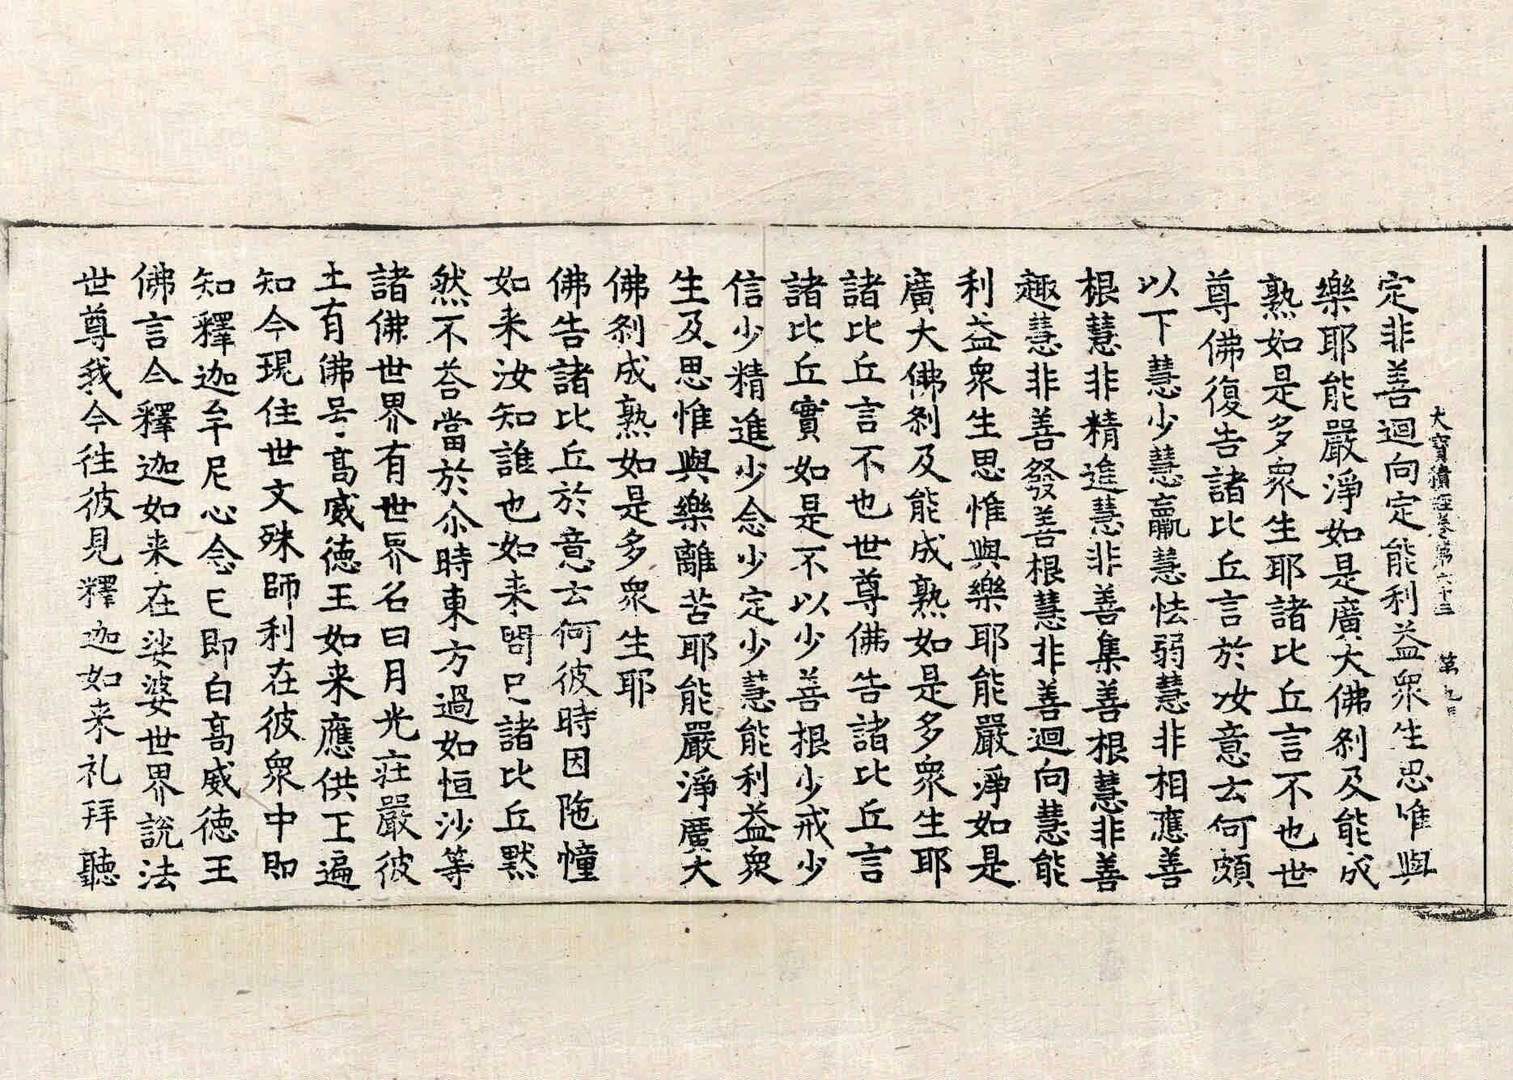 大寶積經卷第六十三 第九
定非善迴向定能利益衆生思惟與
樂耶能嚴淨如是廣大佛刹及能成
熟如是多衆生耶諸比丘言不也世
尊佛復告諸比丘言於汝意云何頗
以下慧少慧羸慧怯弱慧非相應善
根慧非精進慧非善集善根慧非善
趣慧非善發善根慧非善迴向慧能
利益衆生思惟與樂耶能嚴淨如是
廣大佛刹及能成熟如是多衆生耶
諸比丘言不也世尊佛告諸比丘言
諸比丘實如是不以少善根少戒少
信少精進少念少定少慧能利益衆
生及思惟與樂離苦耶能嚴淨廣大
佛刹成熟如是多衆生耶
佛告諸比丘於意云何彼時因陁幢
如来汝知誰也如来問已諸比丘默
然不荅當於尒時東方過如恒沙等
諸佛世界有世界名曰月光莊嚴彼
土有佛号高威德王如来應供正遍
知今現住世文殊師利在彼衆中即
知釋迦牟尼心念已即白髙威徳王
佛言今釋迦如来在娑婆世界說法
世尊我今往彼見釋迦如来礼拜聽